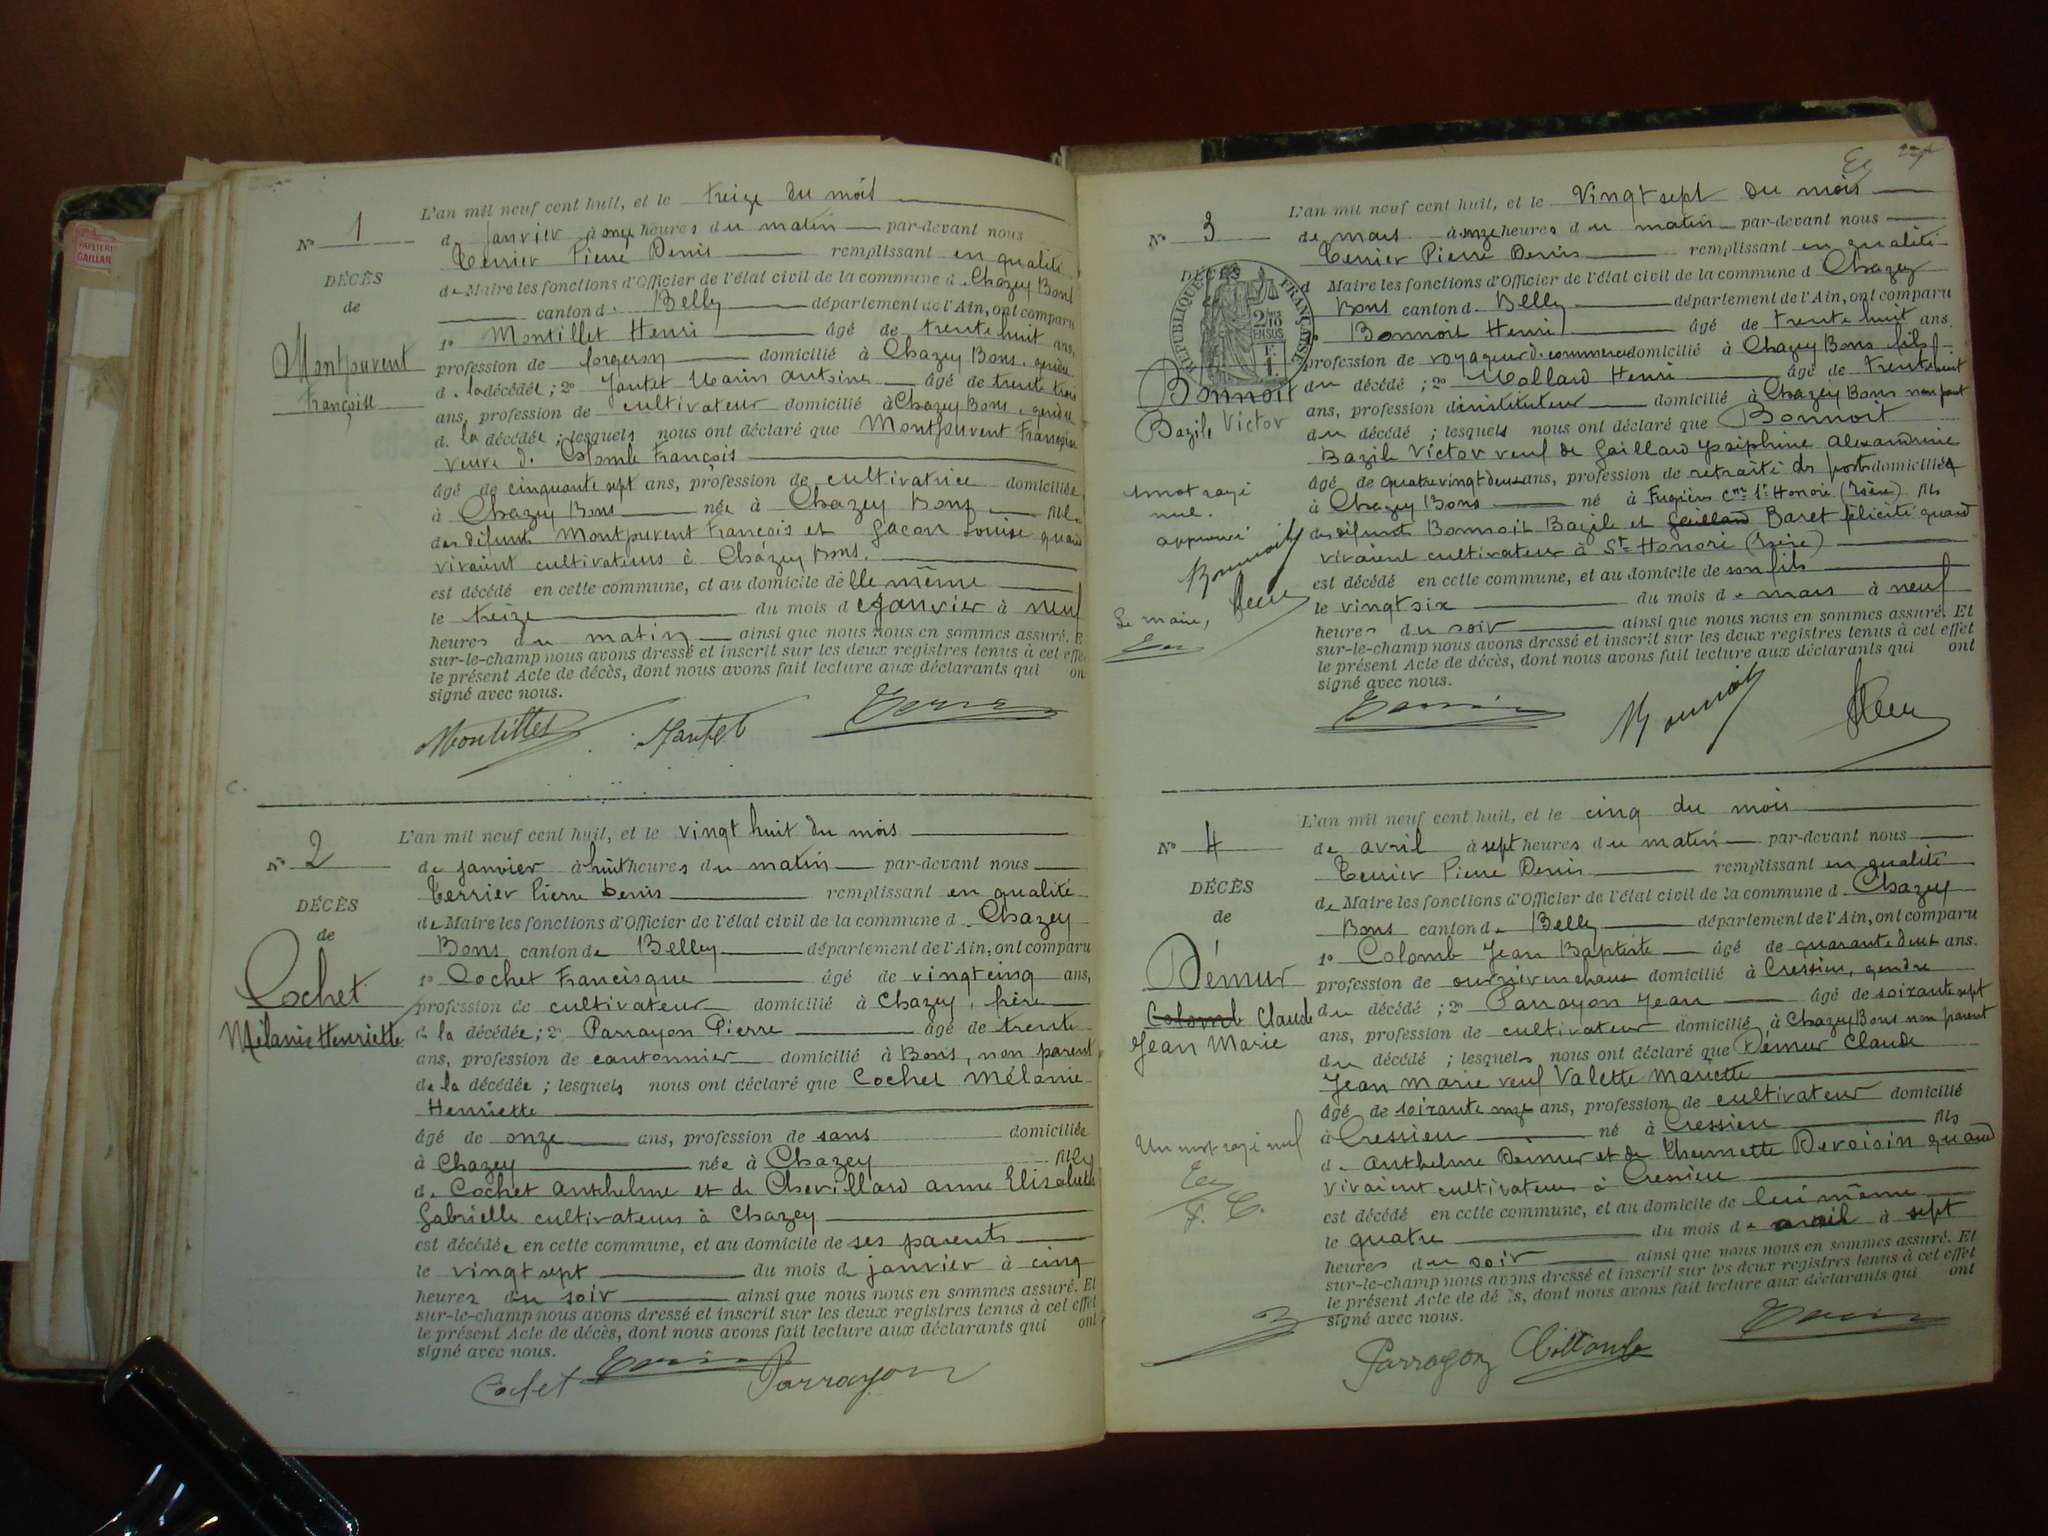 PAPETERIE
GAILLAR
L'an mil neuf cent huit, et le treize du mois
N° 1
d janvier à onze heures du matin par-devant nous
Terrier Pierre Denis remplissant en qualité
DÉCÈS
de Maire les fonctions d'Officier de l'état civil de la commune d Chazey Bons
de
canton de Belley département de l'Ain, ont comparu
1° Montillet Henri âgé de trente huit ans,
Montpuvent
Françoise
profession de forgeron domicilié à Chazey Bons, gendre
de la décédée; 2° Jantet Marin Antoine âgé de trente trois
ans, profession de cultivateur domicilié à Chazey Bons, gendre
d. la décédée; lesquels nous ont déclaré que Montpuvent Françoise
veuve de Colomb François
âgé de cinquante sept ans, profession de cultivatrice domiciliée
à Chazey Bons née à Chazey Bons fille
des défunts Montpuvent François et Gacon Louise quand
vivaient cultivateurs à Chazey Bons.
est décédé en cette commune, et au domicile de lle même
le treize du mois de janvier à neuf
heures du matin ainsi que nous nous en sommes assuré. E
sur-le-champ nous avons dressé et inscrit sur les deux registres tenus à cet effe
le présent Acte de décès, dont nous avons fait lecture aux déclarants qui on
signé avec nous.
Montillet Jantet Terrier
L'an mil neuf cent huit, et le vingt huit du mois
N° 2
de janvier à huit heures du matin par-devant nous
Terrier Pierre Denis remplissant en qualité
DÉCÈS
de Maire les fonctions d'Officier de l'état civil de la commune d. Chazey
de
Bons canton de Belley département de l'Ain, ont comparu
1° Cochet Francisque âgé de vingt cinq ans,
Cochet
Mélanie Henriette
profession de cultivateur domicilié à Chazey, frère
d la décédée; 2° Parrayon Pierre âgé de trente
ans, profession de cantonnier domicilié à Bons, non parent
de la décédée; lesquels nous ont déclaré que Cochet Mélanie
Henriette
âgé de onze ans, profession de sans domiciliée
à Chazey née à Chazey fille
d. Cochet Anthelme et de Chevillard Anne Elisabeth
Gabrielle cultivateurs à Chazey
est décédée en cette commune, et au domicile de ses parents
le vingt sept du mois de janvier à cinq
heures du soir ainsi que nous nous en sommes assuré. Et
sur-le-champ nous avons dressé et inscrit sur les deux registres tenus à cet effet
le présent Acte de décès, dont nous avons fait lecture aux déclarants qui ont
signé avec nous.
Cochet Terrier Parrayon
L'an mil neuf cent huit, et le Vingt sept du mois
N° 3
de mars à onze heures du matin par-devant nous
Terrier Pierre Denis remplissant en qualité
DÉCÈS
RÉPUBLIQUE FRANÇAISE
d Maire les fonctions d'Officier de l'état civil de la commune d Chazey
Bons canton d. Belley département de l'Ain, ont comparu
Bonnoit Henri âgé de trente huit ans.
profession de voyageur d. commerce domicilié à Chazey Bons fils
Bonnoit
Bazile Victor
du décédé; 2° Mollard Henri âgé de Trente huit
ans, profession d instituteur domicilié à Chazey Bons non parent
du décédé; lesquels nous ont déclaré que Bonnoit
Bazile Victor veuf de Gaillard Joséphine Alexandrine
âgé de quatre vingt deux ans, profession de retraité des postes domicilié
à Chazey Bons né à Fugières Cne St Honoré (Isère) fils
des défunts Bonnoit Bazile et Gaillard Baret félicité quand
vivaient cultivateur à St Honoré (Isère)
1 mot rayé
nul.
approuvé
Bonnoit
Le maire,
est décédé en cette commune, et au domicile de son fils
le vingt six du mois de mars à neuf
heures du soir ainsi que nous nous en sommes assuré. Et
sur-le-champ nous avons dressé et inscrit sur les deux registres tenus à cet effet
le présent Acte de décès, dont nous avons fait lecture aux déclarants qui ont
signé avec nous.
Terrier Bonnoit
L'an mil neuf cent huit, et le cinq du mois
N° 4
de avril à sept heures du matin par-devant nous
Terrier Pierre Denis remplissant en qualité
DÉCÈS
de Maire les fonctions d'Officier de l'état civil de la commune d Chazey
de
Bons canton de Belley département de l'Ain, ont comparu
1° Colomb Jean Baptiste âgé de quarante deux ans.
Démur
Colomb Claude
Jean Marie
profession de ouvrier en chaux domicilié à Cressieu, gendre
du décédé; 2° Parrayon Jean âgé de soixante sept
ans, profession de cultivateur domicilié à Chazey Bons non parent
du décédé; lesquels nous ont déclaré que Démur Claude
Jean Marie veuf Valette Mariette
âgé de soixante onze ans, profession de cultivateur domicilié
à Cressieu né à Cressieu fils
d. Anthelme Démur et de Thermette Devoisin quand
vivaient cultivateurs à Cressieu
Un mot rayé nul
est décédé en cette commune, et au domicile de lui même
le quatre du mois de avril à sept
heures du soir ainsi que nous nous en sommes assuré. Et
sur-le-champ nous avons dressé et inscrit sur les deux registres tenus à cet effet
le présent Acte de décès, dont nous avons fait lecture aux déclarants qui ont
signé avec nous.
Parrayon Collomb Terrier